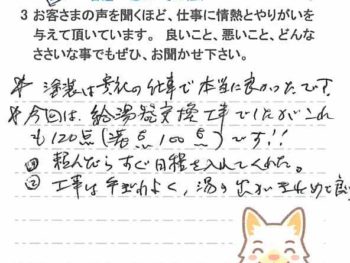 3 お客さまの声を聞くほど、仕事に情熱とやりがいを
与えて頂いています。 良いこと、悪いこと、どんな
ささいな事でもぜひ、お聞かせ下さい。
* 塗装は貴社の仕事で本当に良かったです。
* 今回は、給湯器交換工事でしたがこれ
も120点(満点100点)です!!
① 頼んだらすぐ日程を入れてくれた。
② 工事は手ぎわよく、湯の出がきわめて良